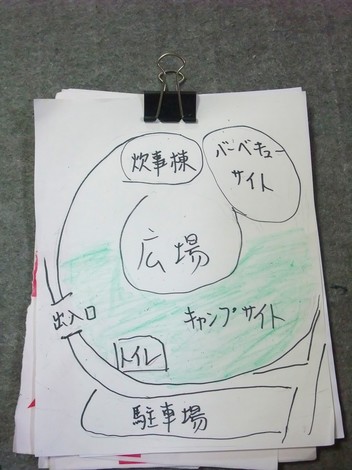 炊事棟
バーベキュー
サイト
広場
キャンプサイト
出入口
トイレ
駐車場